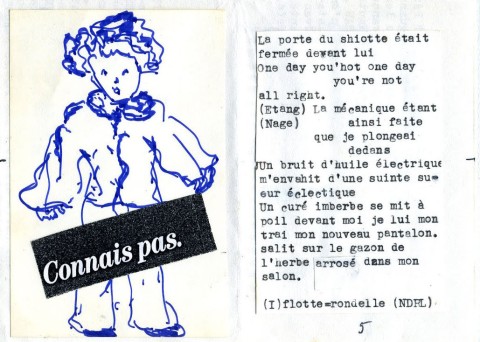 Connais pas.
La porte du shiotte était
fermée devant lui
One day you'hot one day
you're not
all right.
(Etang) La mécanique étant
(Nage) ainsi faite
que je plongeai
dedans
Un bruit d'huile électrique
m'envahit d'une suinte su=
eur éclectique
Un curé imberbe se mit à
poil devant moi je lui mon
trai mon nouveau pantalon.
salit sur le gazon de
l'herbe arrosé dans mon
salon.
(I)flotte=rondelle (NDRL)
5